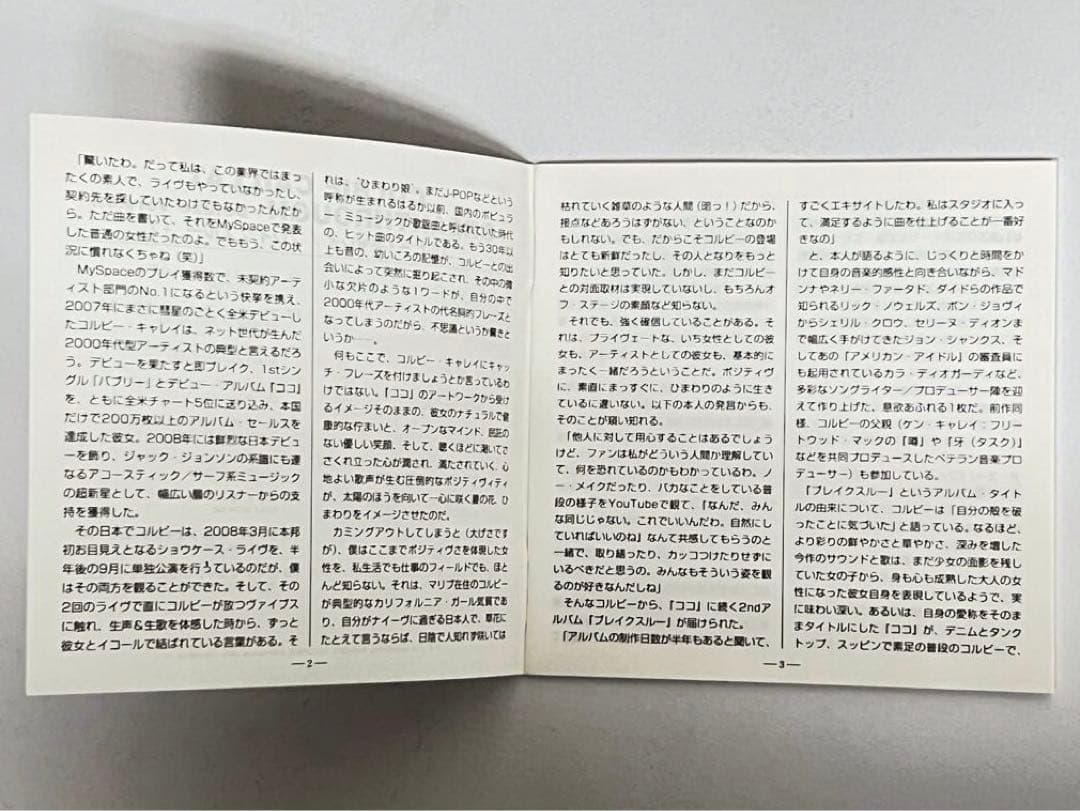 「驚いたわ。だって私は、この業界ではまっ
たくの素人で、ライヴもやっていなかったし、
契約先を探していたわけでもなかったんだか
ら。ただ曲を書いて、それをMySpaceで発表
した普通の女性だったのよ。でももう、この状
況に慣れなくちゃね（笑）」
MySpaceのプレイ獲得数で、未契約アーテ
ィスト部門のNo.1になるという快挙を携え、
2007年にまさに彗星のごとく全米デビューし
たコルビー・キャレイは、ネット世代が生んだ
2000年代型アーティストの典型と言えるだろ
う。デビューを果たすと即ブレイク、1stシン
グル「バブリー」とデビュー・アルバム『ココ』
を、ともに全米チャート5位に送り込み、本国
だけで200万枚以上のアルバム・セールスを
達成した彼女。2008年には鮮烈な日本デビュ
ーを飾り、ジャック・ジョンソンの系譜にも連
なるアコースティック／サーフ系ミュージック
の超新星として、幅広い層のリスナーからの支
持を獲得した。
その日本でコルビーは、2008年3月に本邦
初お目見えとなるショウケース・ライヴを、半
年後の9月に単独公演を行っているのだが、僕
はその両方を観ることができた。そして、その
2回のライヴで直にコルビーが放つヴァイブス
に触れ、生声＆生歌を体感した時から、ずっと
彼女とイコールで結ばれている言葉がある。そ
れは、“ひまわり娘”。まだJ-POPなどという
呼称が生まれるはるか以前、国内のポピュラ
ー・ミュージックが歌謡曲と呼ばれていた時代
の、ヒット曲のタイトルである。もう30年以
上も昔の、幼いころの記憶が、コルビーとの出
会いによって突然に掘り起こされ、その中の微
小な欠片のような1ワードが、自分の中で
2000年代アーティストの代名詞的フレーズと
なってしまうのだから、不思議というか驚きと
いうか──。
何もここで、コルビー・キャレイにキャッ
チ・フレーズを付けましょうとか言っているわ
けではない。『ココ』のアートワークから受け
るイメージそのままの、彼女のナチュラルで健
康的な佇まいと、オープンなマインド、邪気の
ない優しい笑顔、そして、聴くほどに渇いてさ
さくれ立った心が潤され、満たされていく、心
地よい歌声が生む圧倒的なポジティヴィティ
が、太陽のほうを向いて一心に咲く夏の花、ひ
まわりをイメージさせたのだ。
カミングアウトしてしまうと（大げさです
が）、僕はここまでポジティヴさを体現した女
性を、私生活でも仕事のフィールドでも、ほと
んど知らない。それは、マリブ在住のコルビー
が典型的なカリフォルニア・ガール気質であ
り、自分がナイーヴに過ぎる日本人で、草花に
たとえて言うならば、日陰で人知れず咲いては
―2―
枯れていく雑草のような人間（悲っ！）だから、
接点などあろうはずがない、ということなのか
もしれない。でも、だからこそコルビーの登場
はとても新鮮だったし、その人となりをもっと
知りたいと思っていた。しかし、まだコルビー
との対面取材は実現していないし、もちろんオ
フ・ステージの素顔など知らない。
それでも、強く確信していることがある。そ
れは、プライヴェートな、いち女性としての彼
女も、アーティストとしての彼女も、基本的に
まったく一緒だろうということだ。ポジティヴ
に、素直にまっすぐに、ひまわりのように生き
ているに違いない。以下の本人の発言からも、
そのことが窺い知れる。
「他人に対して用心することはあるでしょう
けど、ファンは私がどういう人間か理解してい
て、何を恐れているのかもわかっているわ。ノ
ー・メイクだったり、バカなことをしている普
段の様子をYouTubeで観て、「なんだ、みん
な同じじゃない。これでいいんだわ。自然にし
ていればいいのね」なんて共感してもらうのと
一緒で、取り繕ったり、カッコつけたりせずに
いるべきだと思うの。みんなもそういう姿を観
るのが好きなんだしね」
そんなコルビーから、『ココ』に続く2ndア
ルバム『ブレイクスルー』が届けられた。
「アルバムの制作日数が半年もあると聞いて、
すごくエキサイトしたわ。私はスタジオに入っ
て、満足するように曲を仕上げることが一番好
きなの」
と、本人が語るように、じっくりと時間をか
けて自身の音楽的感性と向き合いながら、マド
ンナやネリー・ファータド、ダイドらの作品で
知られるリック・ノウェルズ、ボン・ジョヴィ
からシェリル・クロウ、セリーヌ・ディオンま
で幅広く手がけてきたジョン・シャンクス、そ
してあの「アメリカン・アイドル」の審査員に
も起用されているカラ・ディオガーディなど、
多彩なソングライター／プロデューサー陣を迎
えて作り上げた、意欲あふれる1枚だ。前作同
様、コルビーの父親（ケン・キャレイ：フリー
トウッド・マックの『噂』や『牙（タスク）』
などを共同プロデュースしたベテラン音楽プロ
デューサー）も参加している。
『ブレイクスルー』というアルバム・タイト
ルの由来について、コルビーは「自分の殻を破
ったことに気づいた」と語っている。なるほど、
より彩りの鮮やかさと華やかさ、深みを増した
今作のサウンドと歌は、まだ少女の面影を残し
ていた女の子から、身も心も成熟した大人の女
性になった彼女自身を表現しているようで、実
に味わい深い。あるいは、自身の愛称をそのま
まタイトルにした『ココ』が、デニムとタンク
トップ、スッピンで素足の普段のコルビーで、
―3―